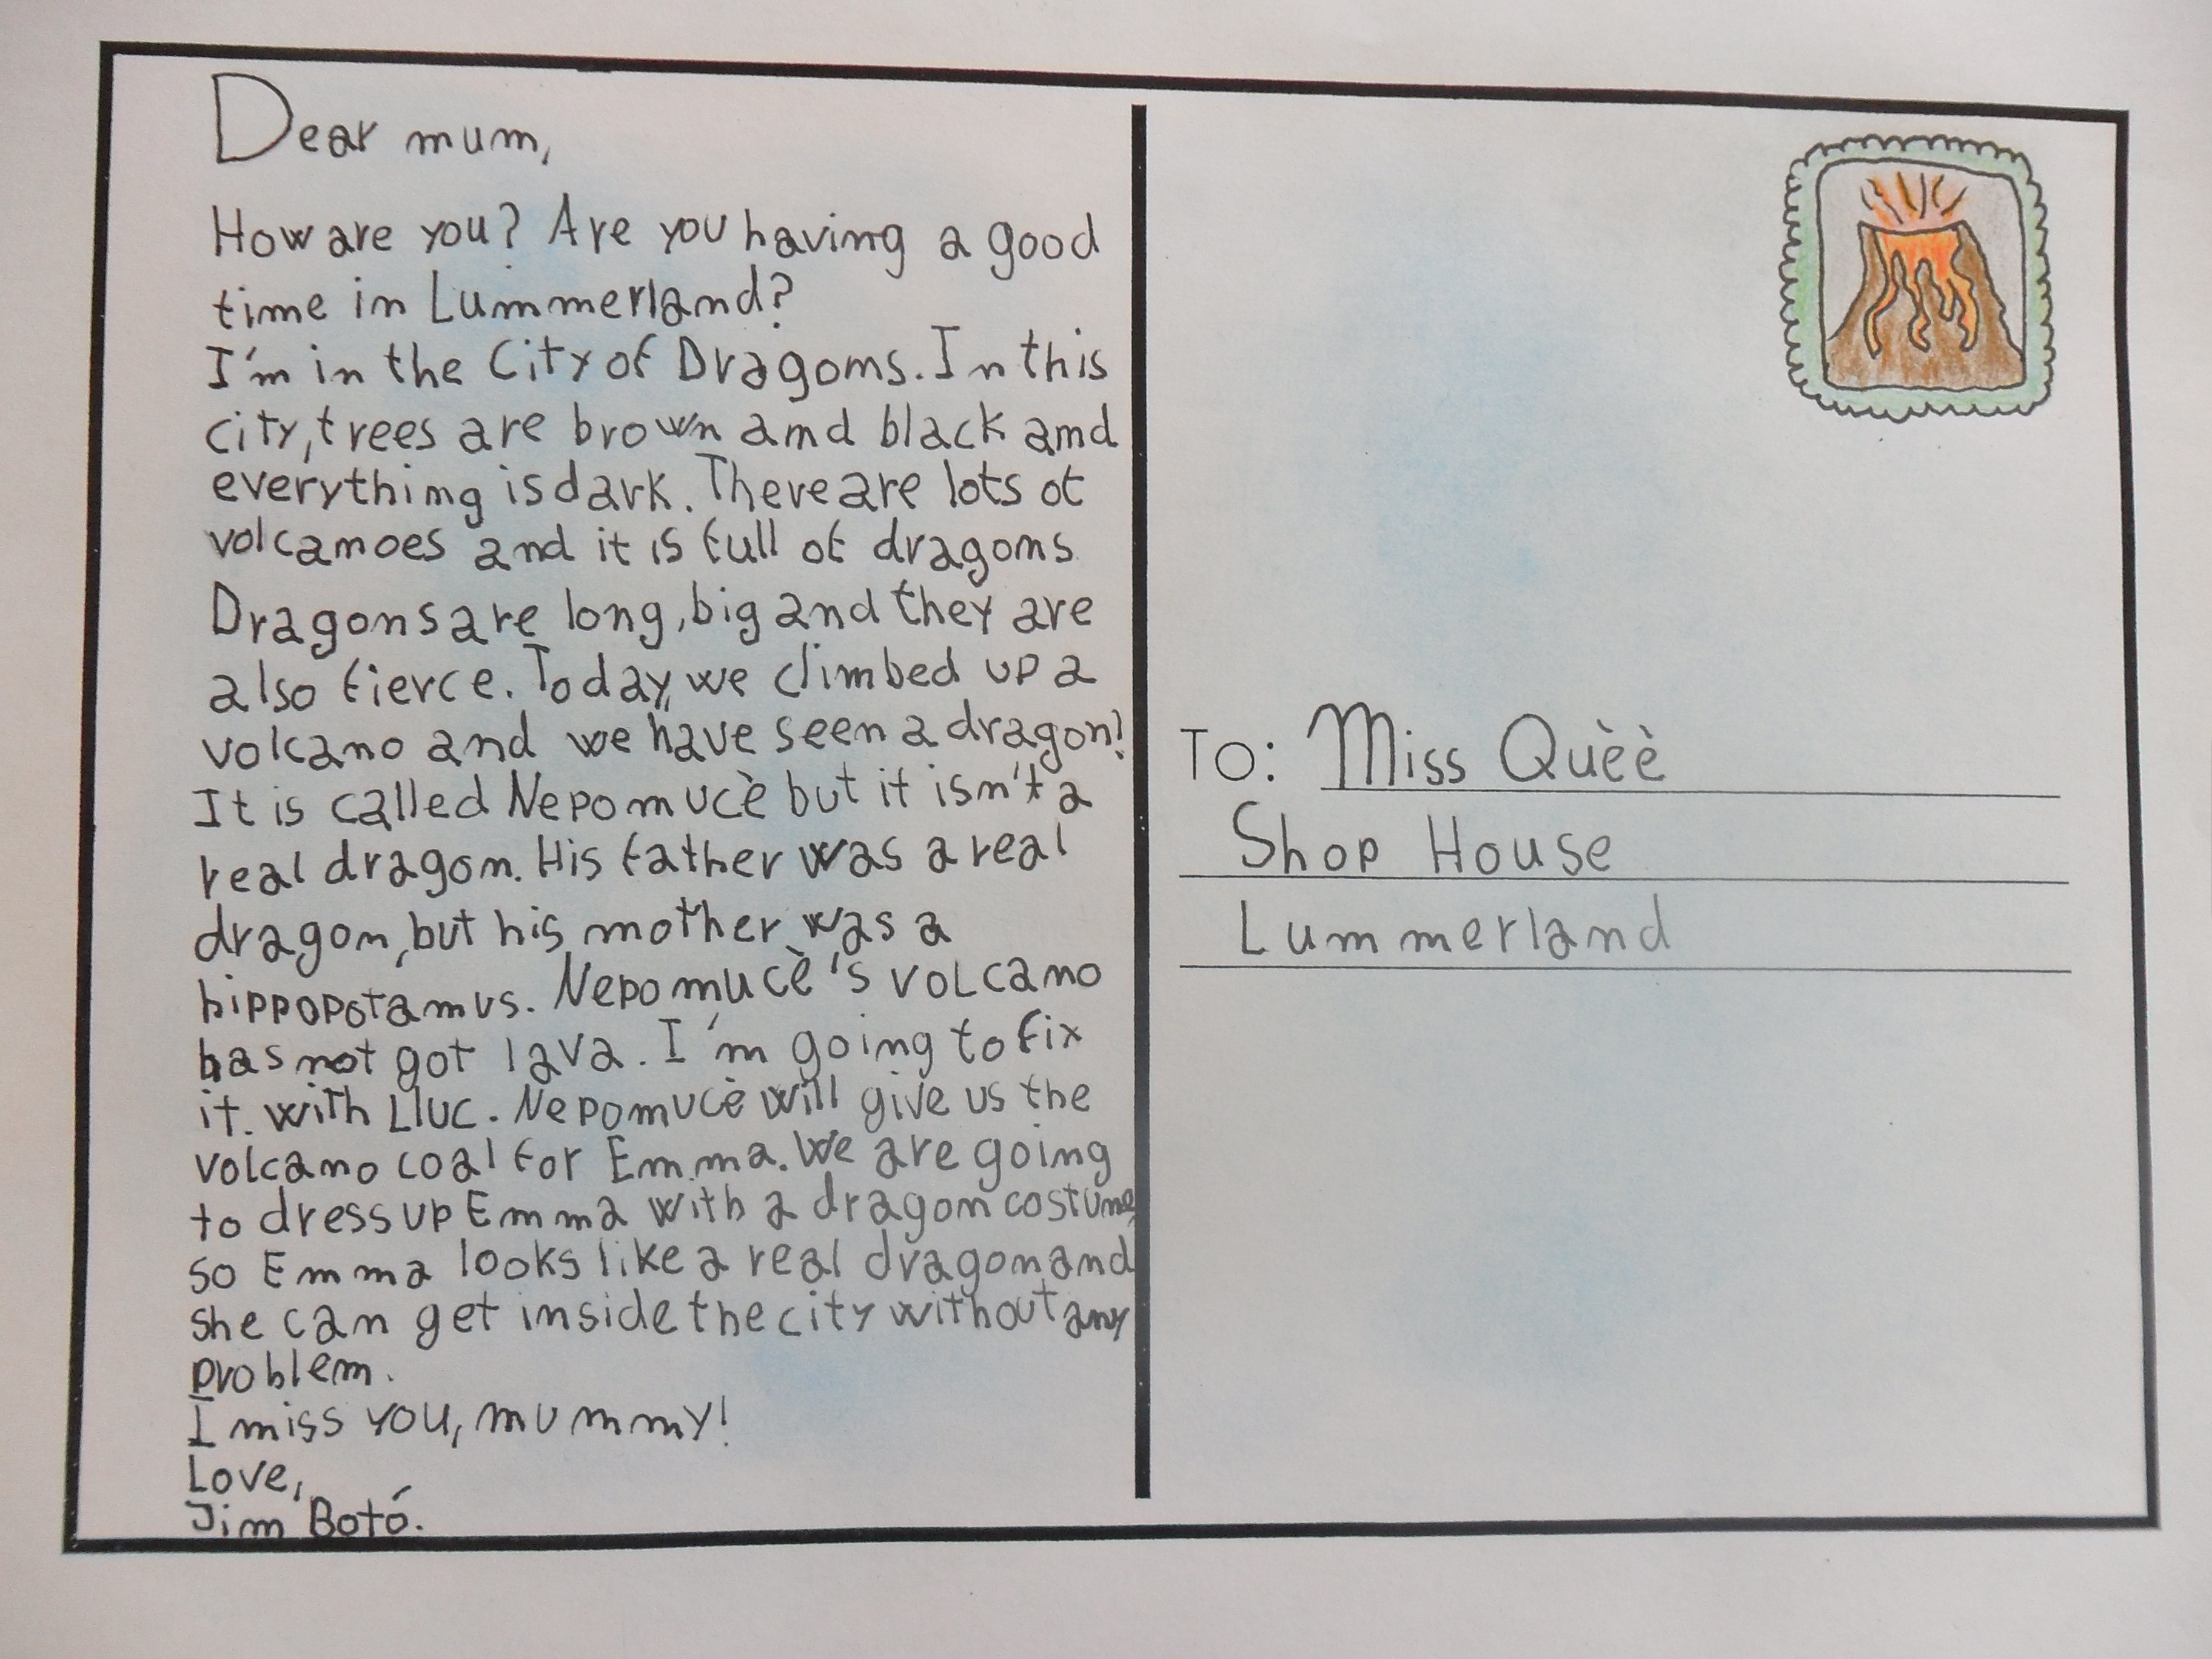 Dear mum,
How are you? Are you having a good
time in Lummerland?
I'm in the City of Dragons. In this
city, trees are brown and black and
everything is dark. There are lots of
volcanoes and it is full of dragons
Dragons are long, big and they are
also fierce. Today, we climbed up a
volcano and we have seen a dragon!
It is called Nepomucè but it isn't a
real dragon. His father was a real
dragon, but his mother was a
hippopotamus. Nepomucè's volcano
has not got lava. I'm going to fix
it with Lluc. Nepomucè will give us the
volcano coal for Emma. We are going
to dress up Emma with a dragon costume,
so Emma looks like a real dragon and
she can get inside the city without any
problem.
I miss you, mummy!
Love,
Jim Botó.
TO: Miss Quèè
Shop House
Lummerland